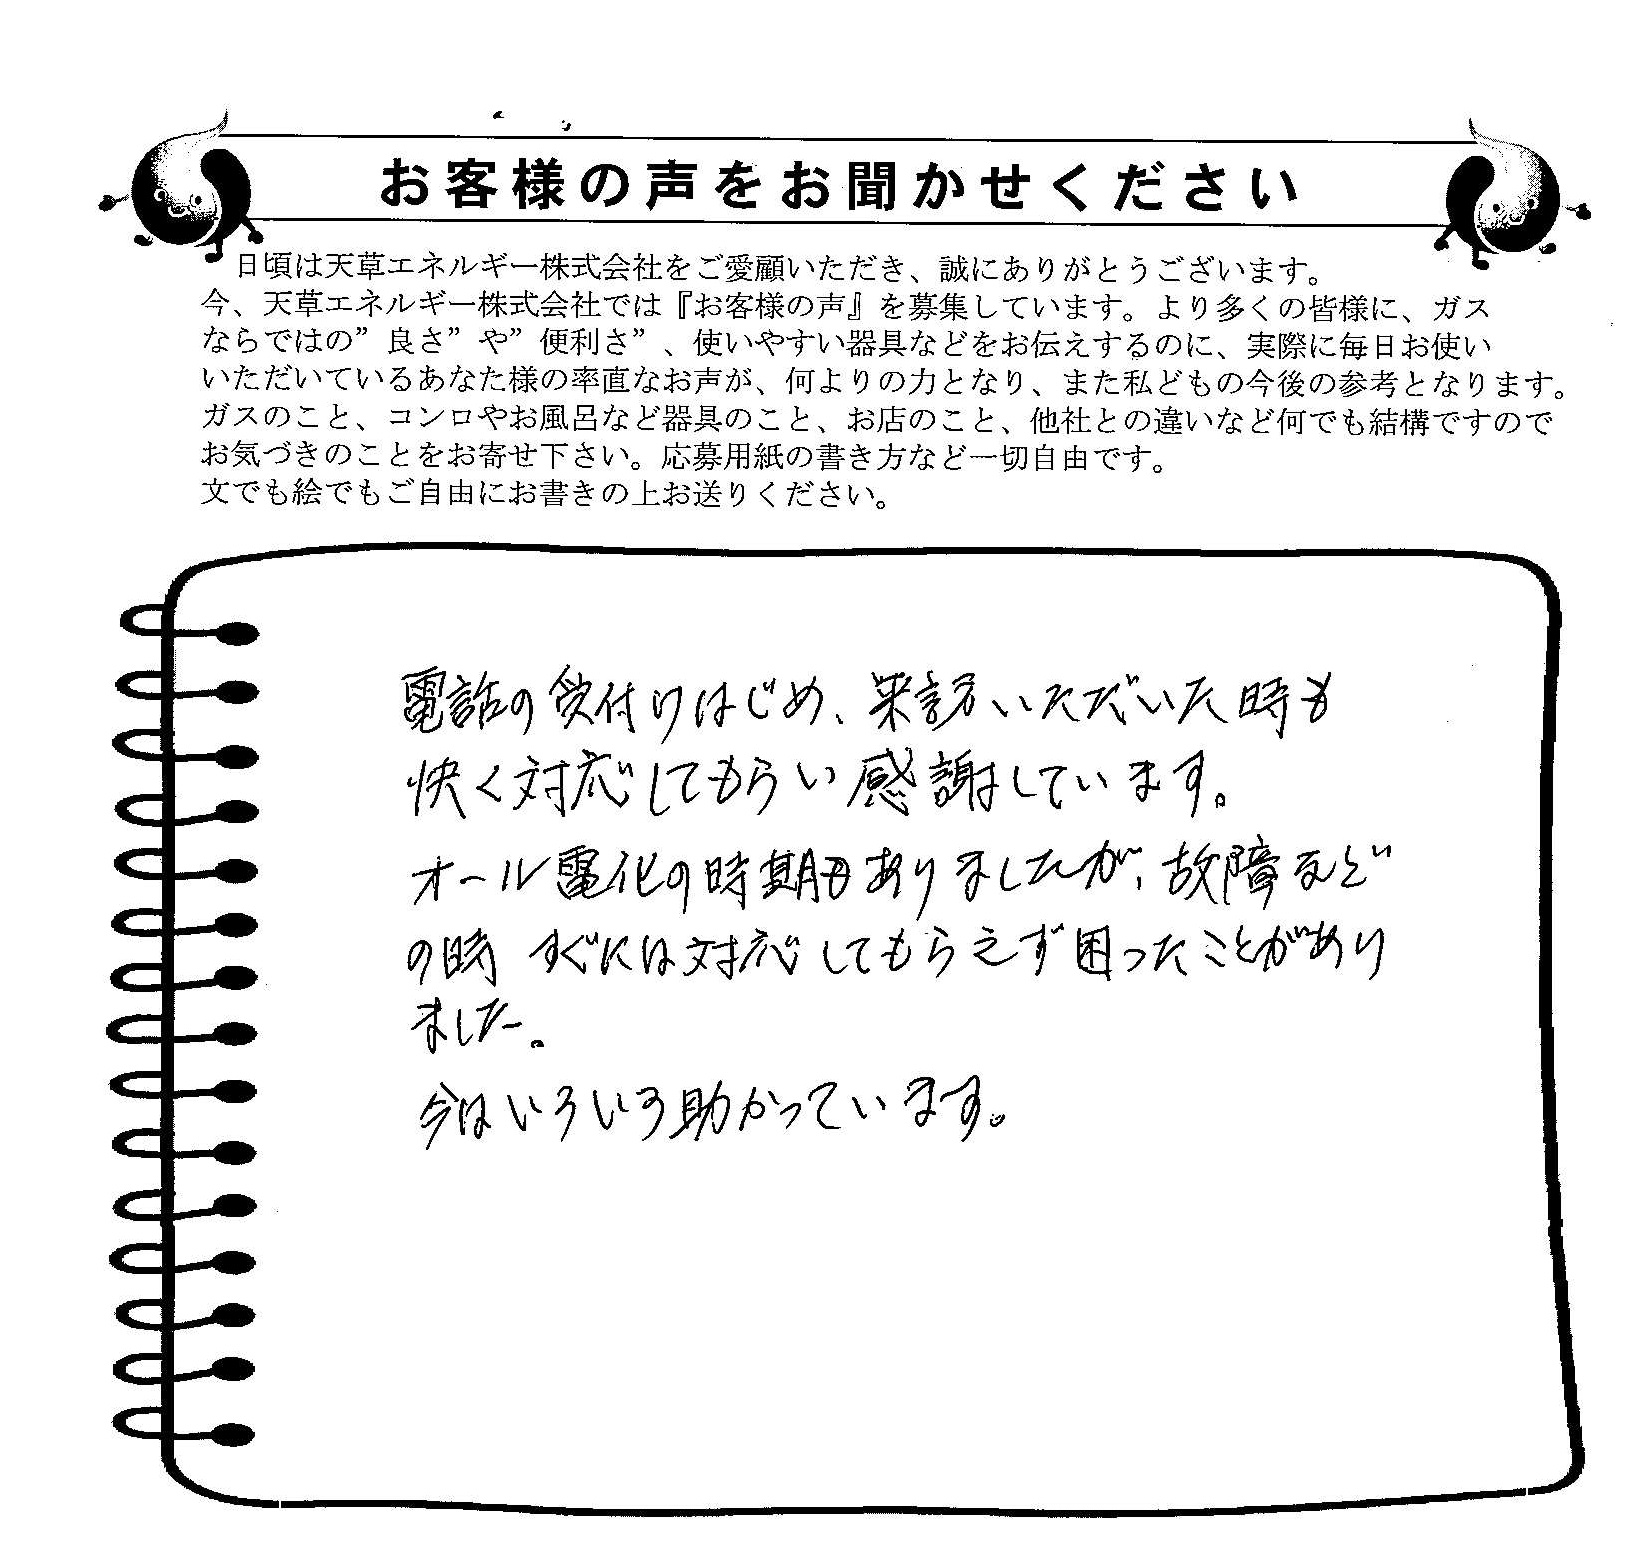 お客様の声をお聞かせください
日頃は天草エネルギー株式会社をご愛顧いただき、誠にありがとうございます。
今、天草エネルギー株式会社では『お客様の声』を募集しています。より多くの皆様に、ガス
ならではの”良さ”や”便利さ”、使いやすい器具などをお伝えするのに、実際に毎日お使い
いただいているあなた様の率直なお声が、何よりの力となり、また私どもの今後の参考となります。
ガスのこと、コンロやお風呂など器具のこと、お店のこと、他社との違いなど何でも結構ですので
お気づきのことをお寄せ下さい。応募用紙の書き方など一切自由です。
文でも絵でもご自由にお書きの上お送りください。
電話の受付けはじめ、来訪いただいた時も
快く対応してもらい感謝しています。
オール電化の時期もありましたが、故障など
の時すぐには対応してもらえず困ったことがあり
ました。
今はいろいろ助かっています。